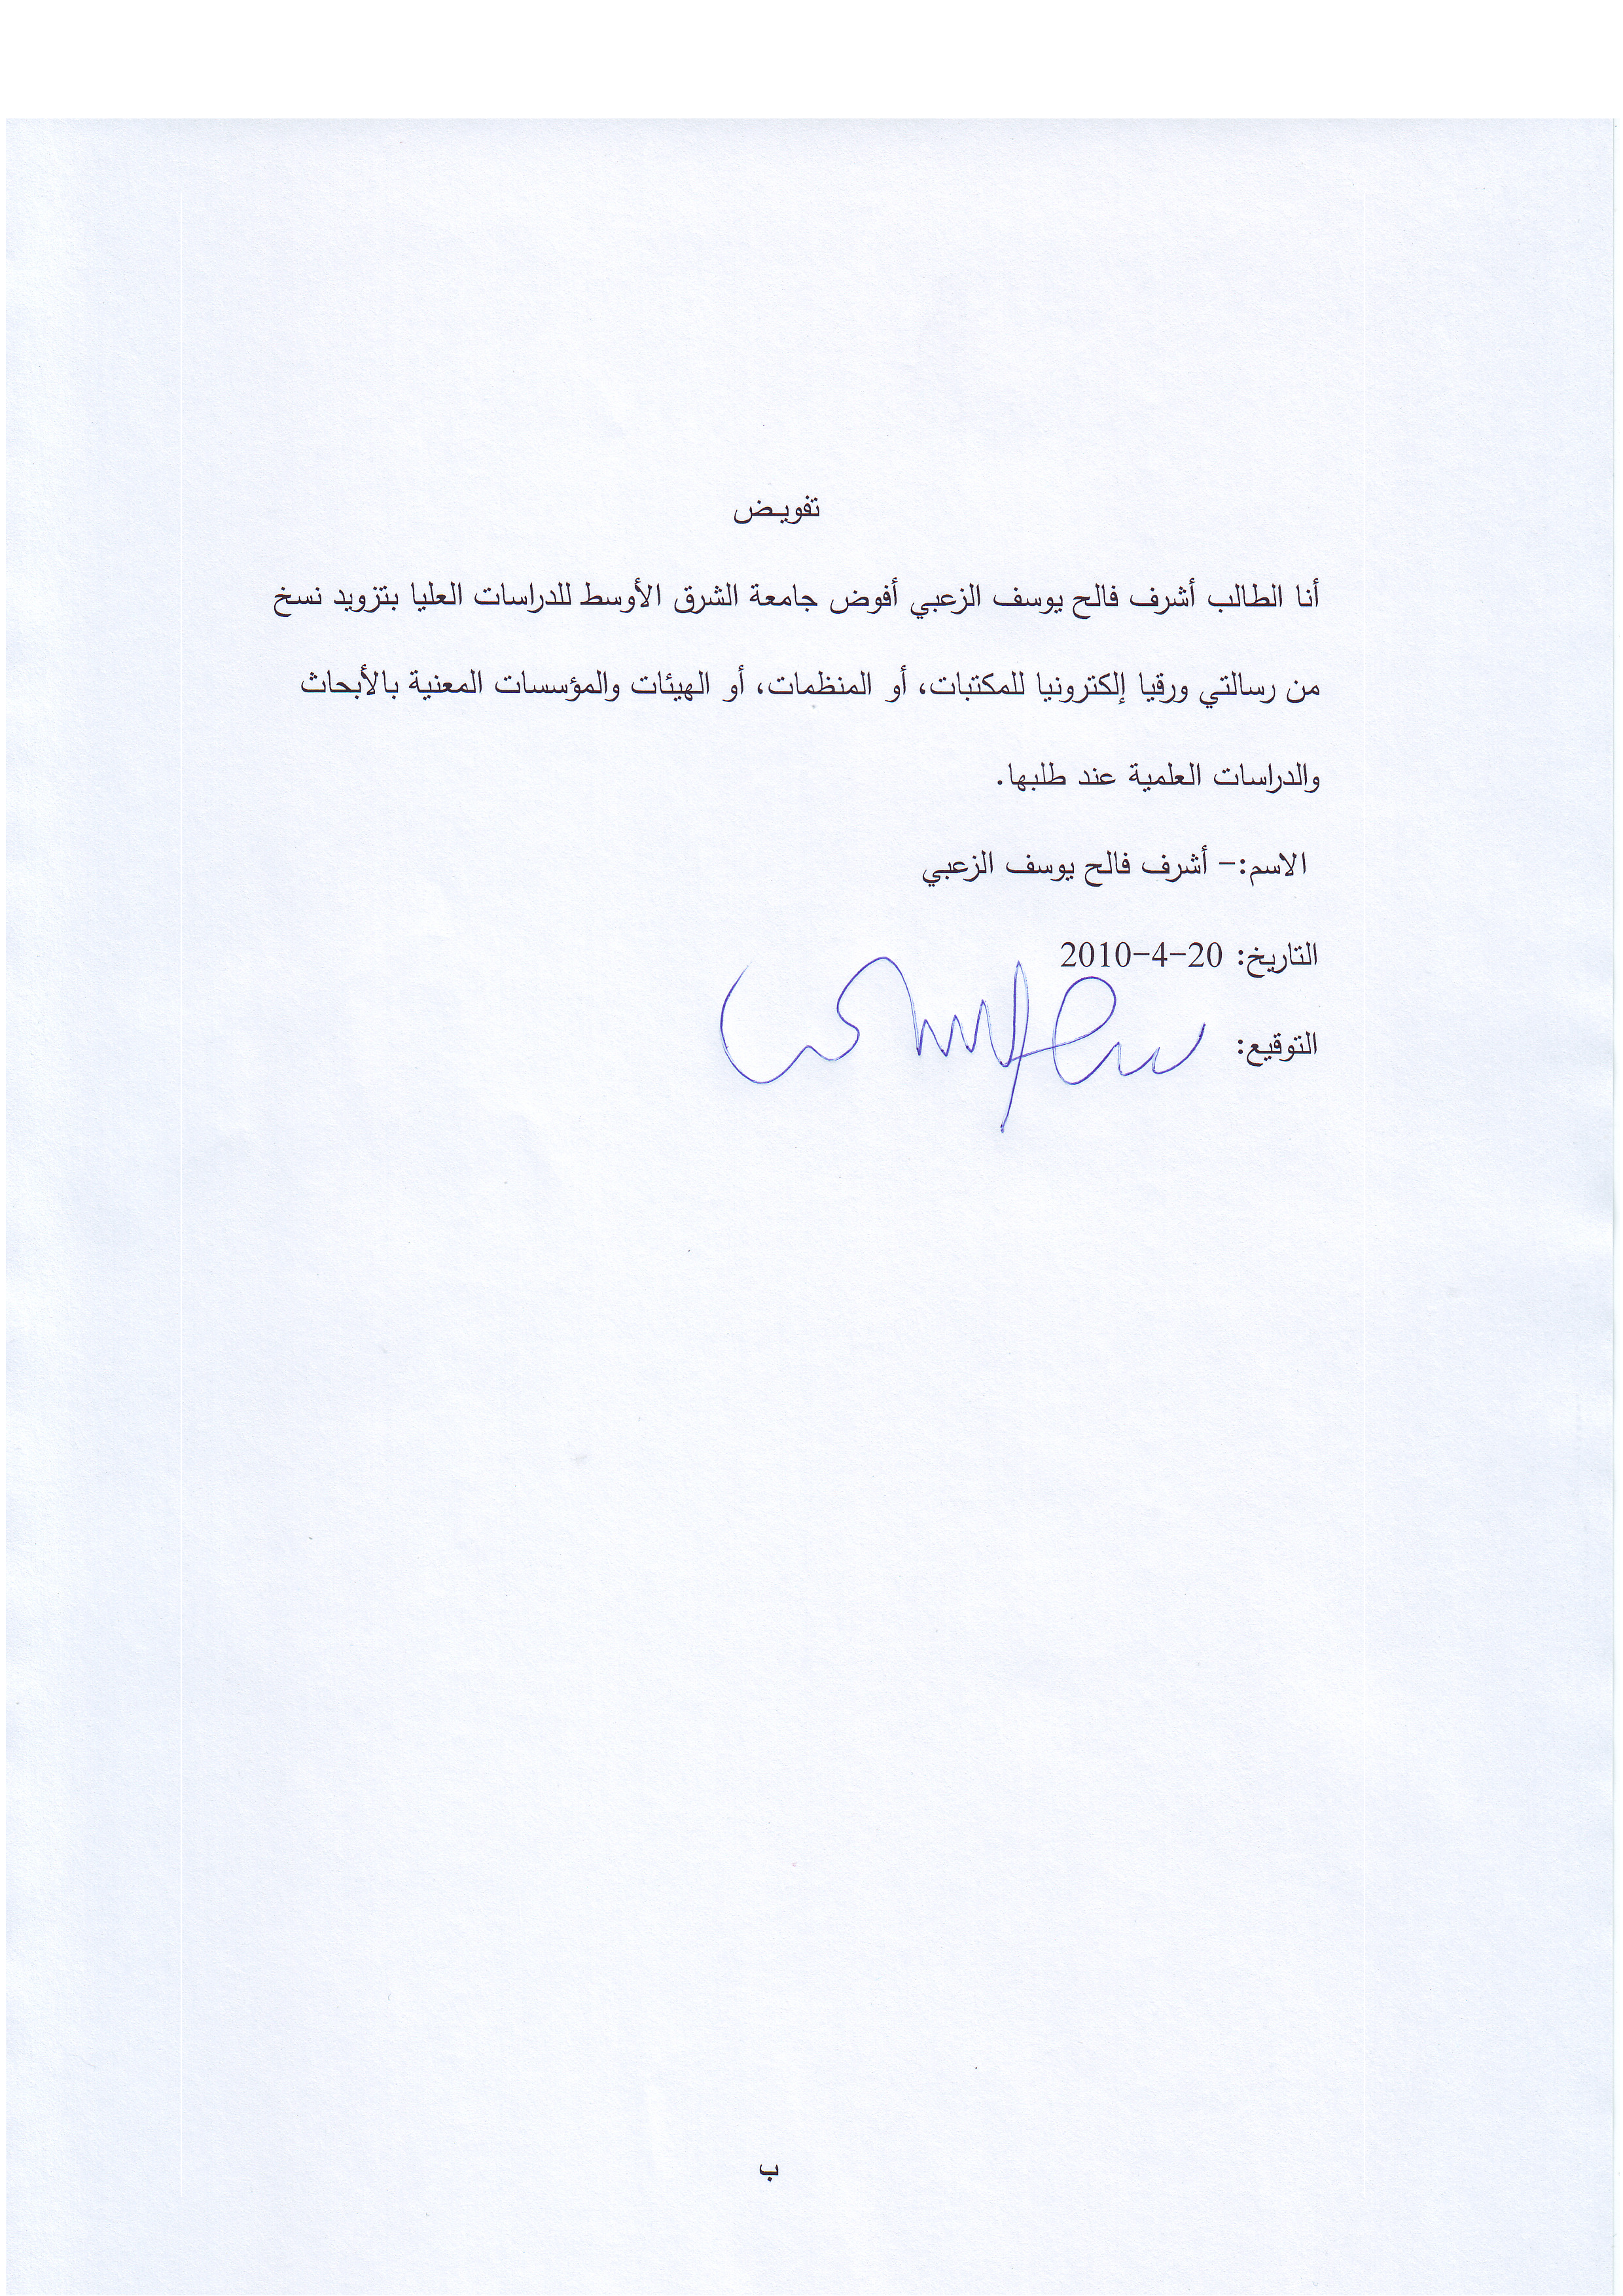 تفويض
أنا الطالب أشرف فالح يوسف الزعبي أفوض جامعة الشرق الأوسط للدراسات العليا بتزويد نسخ
من رسالتي ورقيا إلكترونيا للمكتبات، أو المنظمات، أو الهيئات والمؤسسات المعنية بالأبحاث
والدراسات العلمية عند طلبها.
الاسم:- أشرف فالح يوسف الزعبي
التاريخ: 20-4-2010
التوقيع:
ب